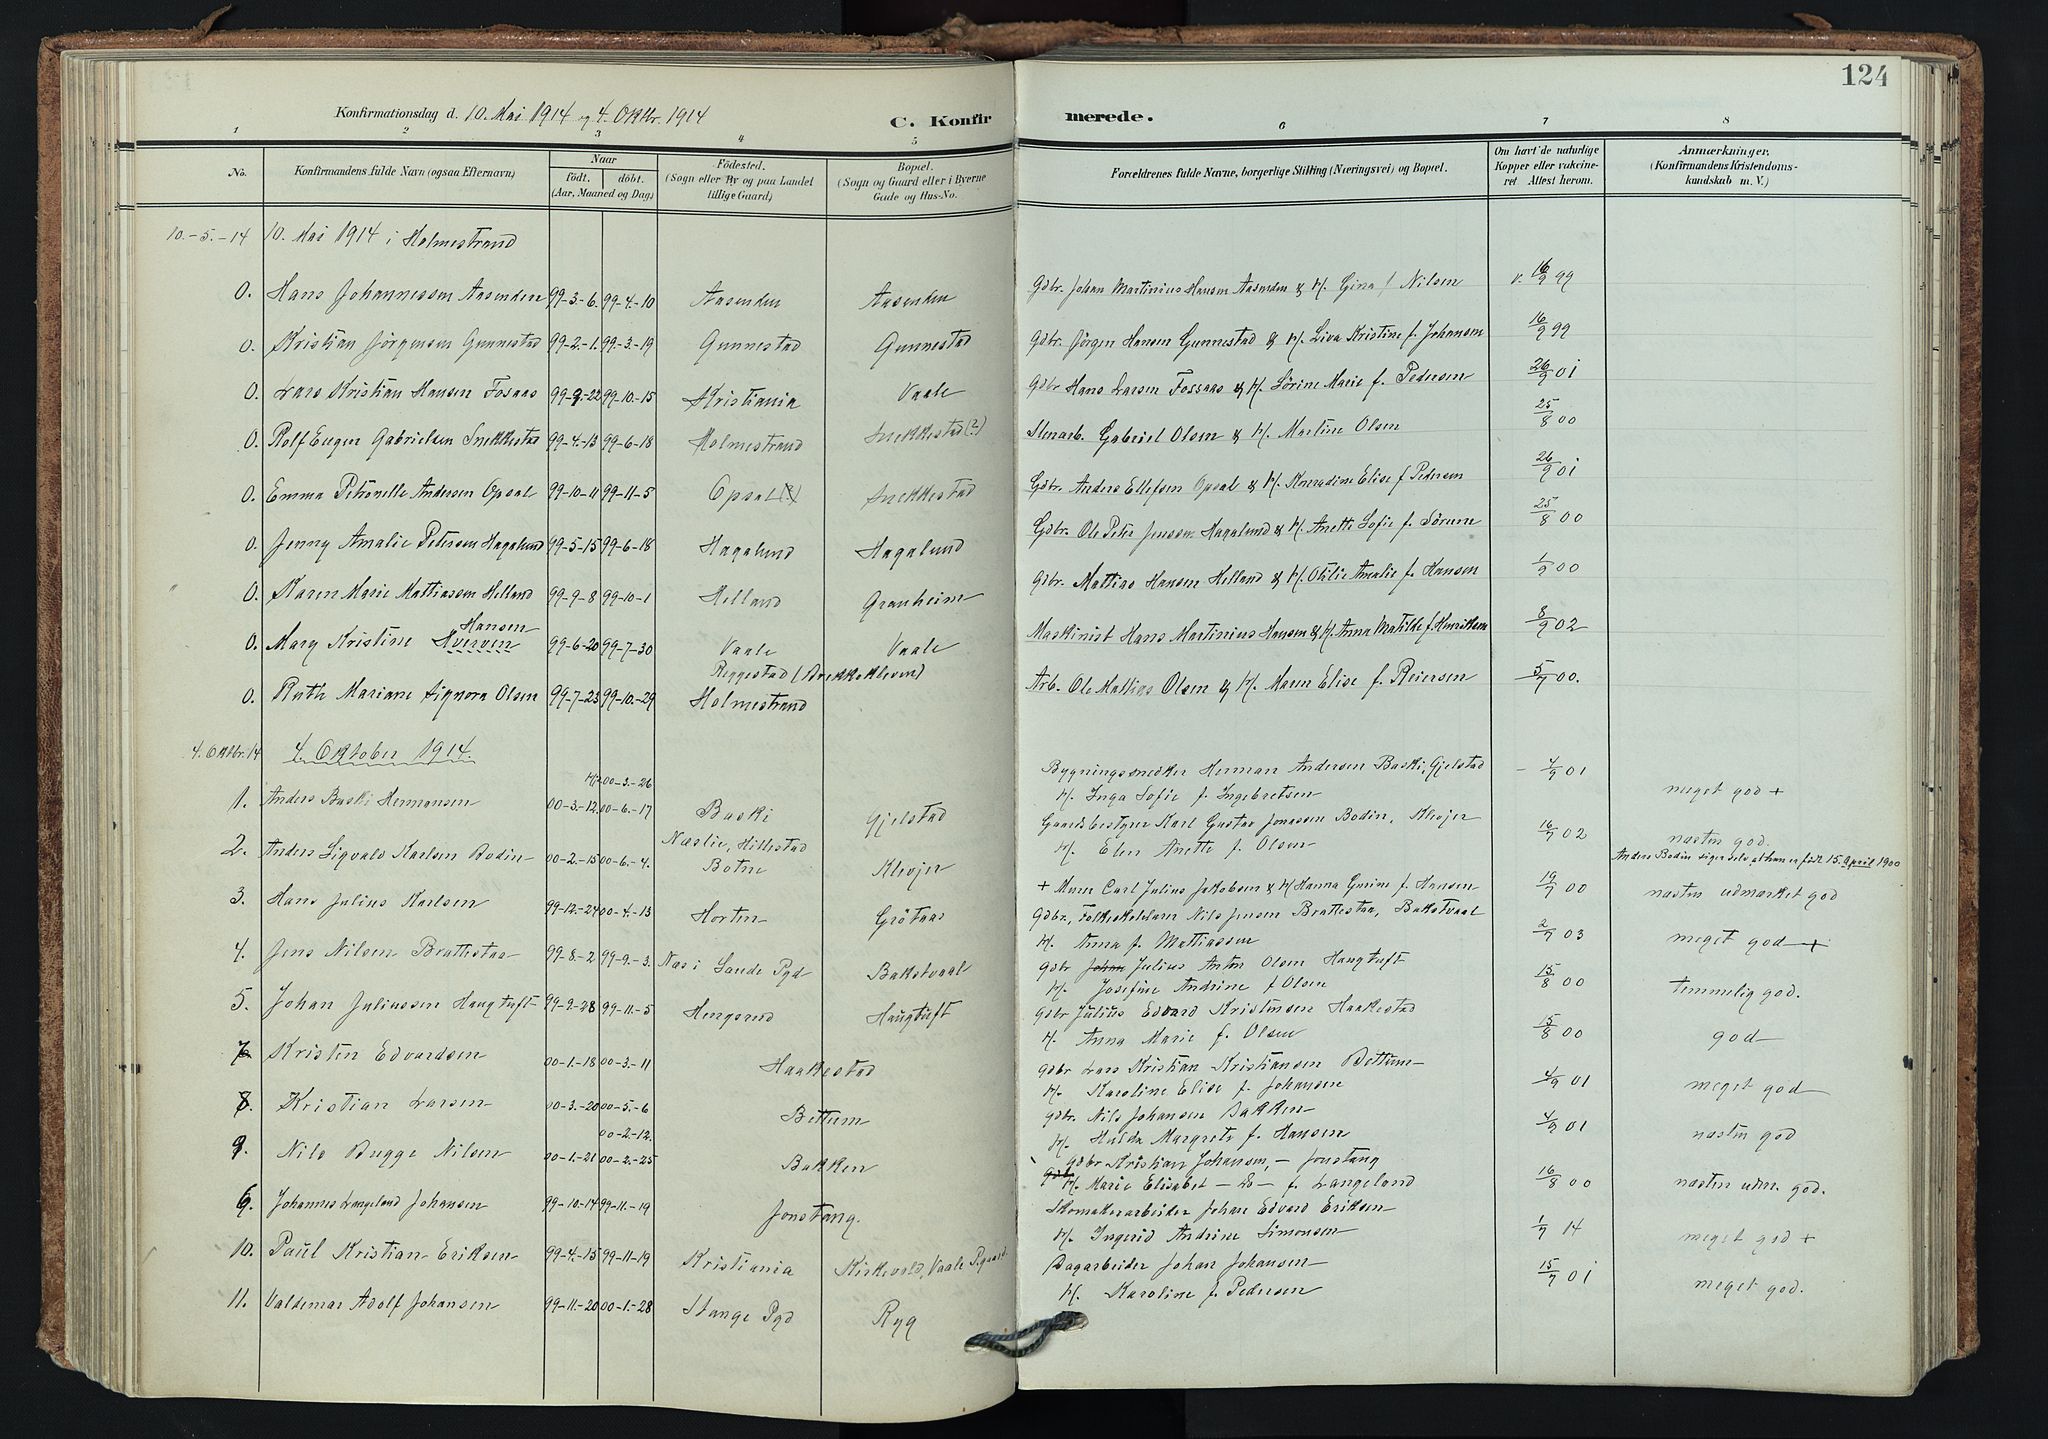 124
Konfirmationsdag d. 10. Mai 1914 og 4. Oktbr. 1914
C. Konfirmerede.
1 2 3 4 5 6 7 8
No. Konfirmandens fulde Navn (ogsaa Efternavn). Naar födt. döbt. (Aar, Maaned og Dag) Födested. (Sogn eller By og paa Landet tillige Gaard) Bopæl. (Sogn og Gaard eller i Byerne Gade og Hus-No. Forældrenes fulde Navne, borgerlige Stilling (Næringsvei) og Bopæl. Om havt de naturlige Kopper eller vakcineret Attest herom. Anmærkninger. (Konfirmandens Kristendomskundskab m. V.)
10.-5.-14 10. Mai 1914 i Holmestrand
0. Hans Johannessen Aasenden 99-3-6. 99-4-10 Aasenden Aasenden Gdbr. Johan Martinius Hansen Aasenden & H. Gina f Nilsen v. 16/9 99
0. Kristian Jörgensen Gunnestad 99-2-1. 99-3-19 Gunnestad Gunnestad Gdbr. Jörgen Hansen Gunnestad & H. Liva Kristine f. Johansen 16/9 99
0. Lars Kristian Hansen Fosaas 99-9-22 99-10-15 Kristiania Vaale Gdbr Hans Larsen Fossaas & H. Sörine Marie f. Pedersen 26/9 01
0. Rolf Eugen Gabrielsen Snekkestad 99-4-13 99-6-18 Holmestrand Snekkestad (?) Stenarb. Gabriel Olsen & H. Martine Olsen 25/8 00
0. Emma Petronelle Andersen Opsal 99-10-11 99-11-5 Opsal (?) Snekkestad Gdbr. Anders Ellefsen Opsal & H. Konradine Elise f Pedersen 26/9 01
0. Jenny Amalie Petersen Hagalund 99-5-15 99-6-18 Hagalund Hagalund Gdbr. Ole Peter Jensen Hagalund & H. Anette Sofie f. Sörum 25/8 00
0. Karen Marie Mattiassen Helland 99-9-8 99-10-1 Helland Granheim Gdbr. Mattias Hansen Helland & H. Otilie Amalie f. Hansen 1/9 00
Hansen
0. Mary Kristine Hverven 99-6-20 99-7-30 Vaale Vaale Maskinist Hans Martinius Hansen & H. Anna Matilde f. Henriksen 8/9 02
Reggestad (Brekkekleven)
0. Ruth Mariane Signora Olsen 99-7-23 99-10-29 Holmestrand Arb. Ole Mattias Olsen & H. Maren Elise f. Reiersen 5/7 00.
4. Oktbr. 14 4. Oktober 1914.
H 00-3.-26 Bygningssnedker Herman Andersen Baski, Gjelstad - 4/9 01
1. Anders Baski Hermansen 00-3.-12 00-6.-17 Baski Gjelstad H. Inga Sofie f. Ingebretsen meget god +
Næslie, Hillestad Gaardsbestyrer Karl Gustav Jonassen Bodin, Klevjer 16/7 02
2. Anders Sigvald Karlsen Bodin 00-2.-15 00-6.-4. Botne Klevjer H. Elen Anette f. Olsen næsten god.
Anders Bodin siger selv at han er född 15. April 1900
3. Hans Julius Karlsen 99-12.-24 00-4.-13 Horten Grötaas + Murer Carl Julius Jakobsen & H Hanna Gurine f. Hansen 19/7 00 næsten udmærket god
Gdbr., Folkeskolelærer Nils Jensen Brattestaa, Bakstvaal
4. Jens Nilsen Brattestaa 99-8.-2 99-9.-3. Næs i Sande Pgd Bakstvaal H. Anna f. Mattiassen 2/9 03 meget god +
gdbr Johan Julius Anton Olsen Haugtuft
5. Johan Juliussen Haugtuft 99-9-28 99-11.-5 Hengsrud Haugtuft H. Josefine Andrine f Olsen 15/8 00 temmelig god.
gdbr Julius Edvard Kristensen Haakestad
7. Kristen Edvardsen 00-1.-18 00-3.-11 Haakestad H. Anna Marie f. Olsen 15/8 00 god
gdbr Lars Kristian Kristiansen Bettum
8. Kristian Larsen 00-3.-20 00-5.-6 Bettum H. Karoline Elise f. Johansen 4/9 01 meget god
00-2.-12. gdbr. Nils Johansen Bakken
9. Nils Bugge Nilsen 00-1.-21 00-2.-25 Bakken H. Hulda Margrete f. Hansen 4/9 01 næsten god
gdbr Kristian Johansen, - Jonstang
6. Johannes Langeland Johansen 99-10-14 99-11.-19 Jonstang. H. Marie Elisabet - Do - f. Langeland 16/8 00 næsten udm. god.
Skomakerarbeider Johan Edvard Eriksen
10. Paul Kristian Eriksen 99-4.-15 99-11-19 Kristiania Kirkevold, Vaale Pgaard H. Ingerid Andrine Simonsen 1/7 14 meget god +
Dagarbeider Johan Johansen
11. Valdemar Adolf Johansen 99-11.-20 00-1.-28 Stange Pgd Ryg H. Karoline f. Pedersen 15/7 01 meget god.